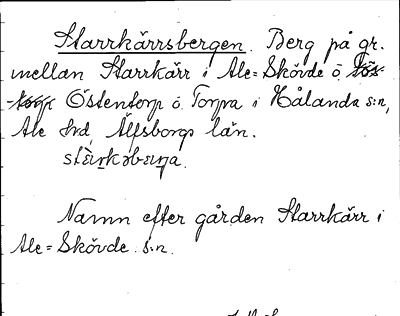 Starrkärrsbergen. Berg på gr.
mellan Starrkärr i Ale=Skövde o.
Östentorp o. Torpa i Hålanda s:n,
Ale hd, Älfsborgs län.
Namn efter gården Starrkärr i
Ale=Skövde s:n.